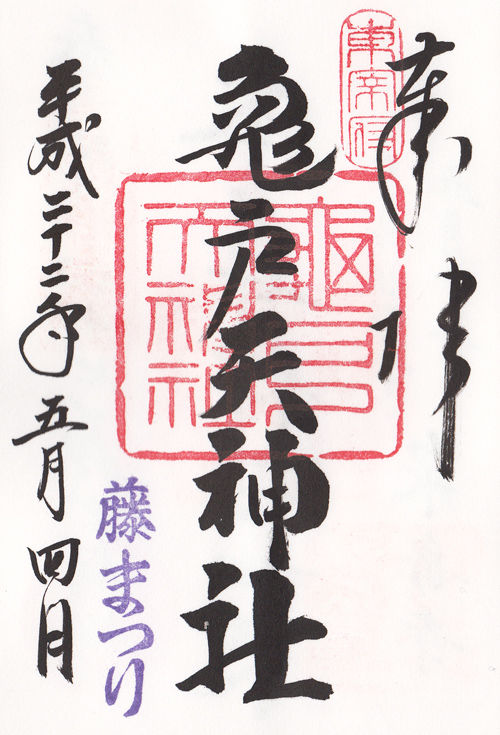 東宰府
奉拝
亀戸天神社
藤まつり
平成二十二年五月四日